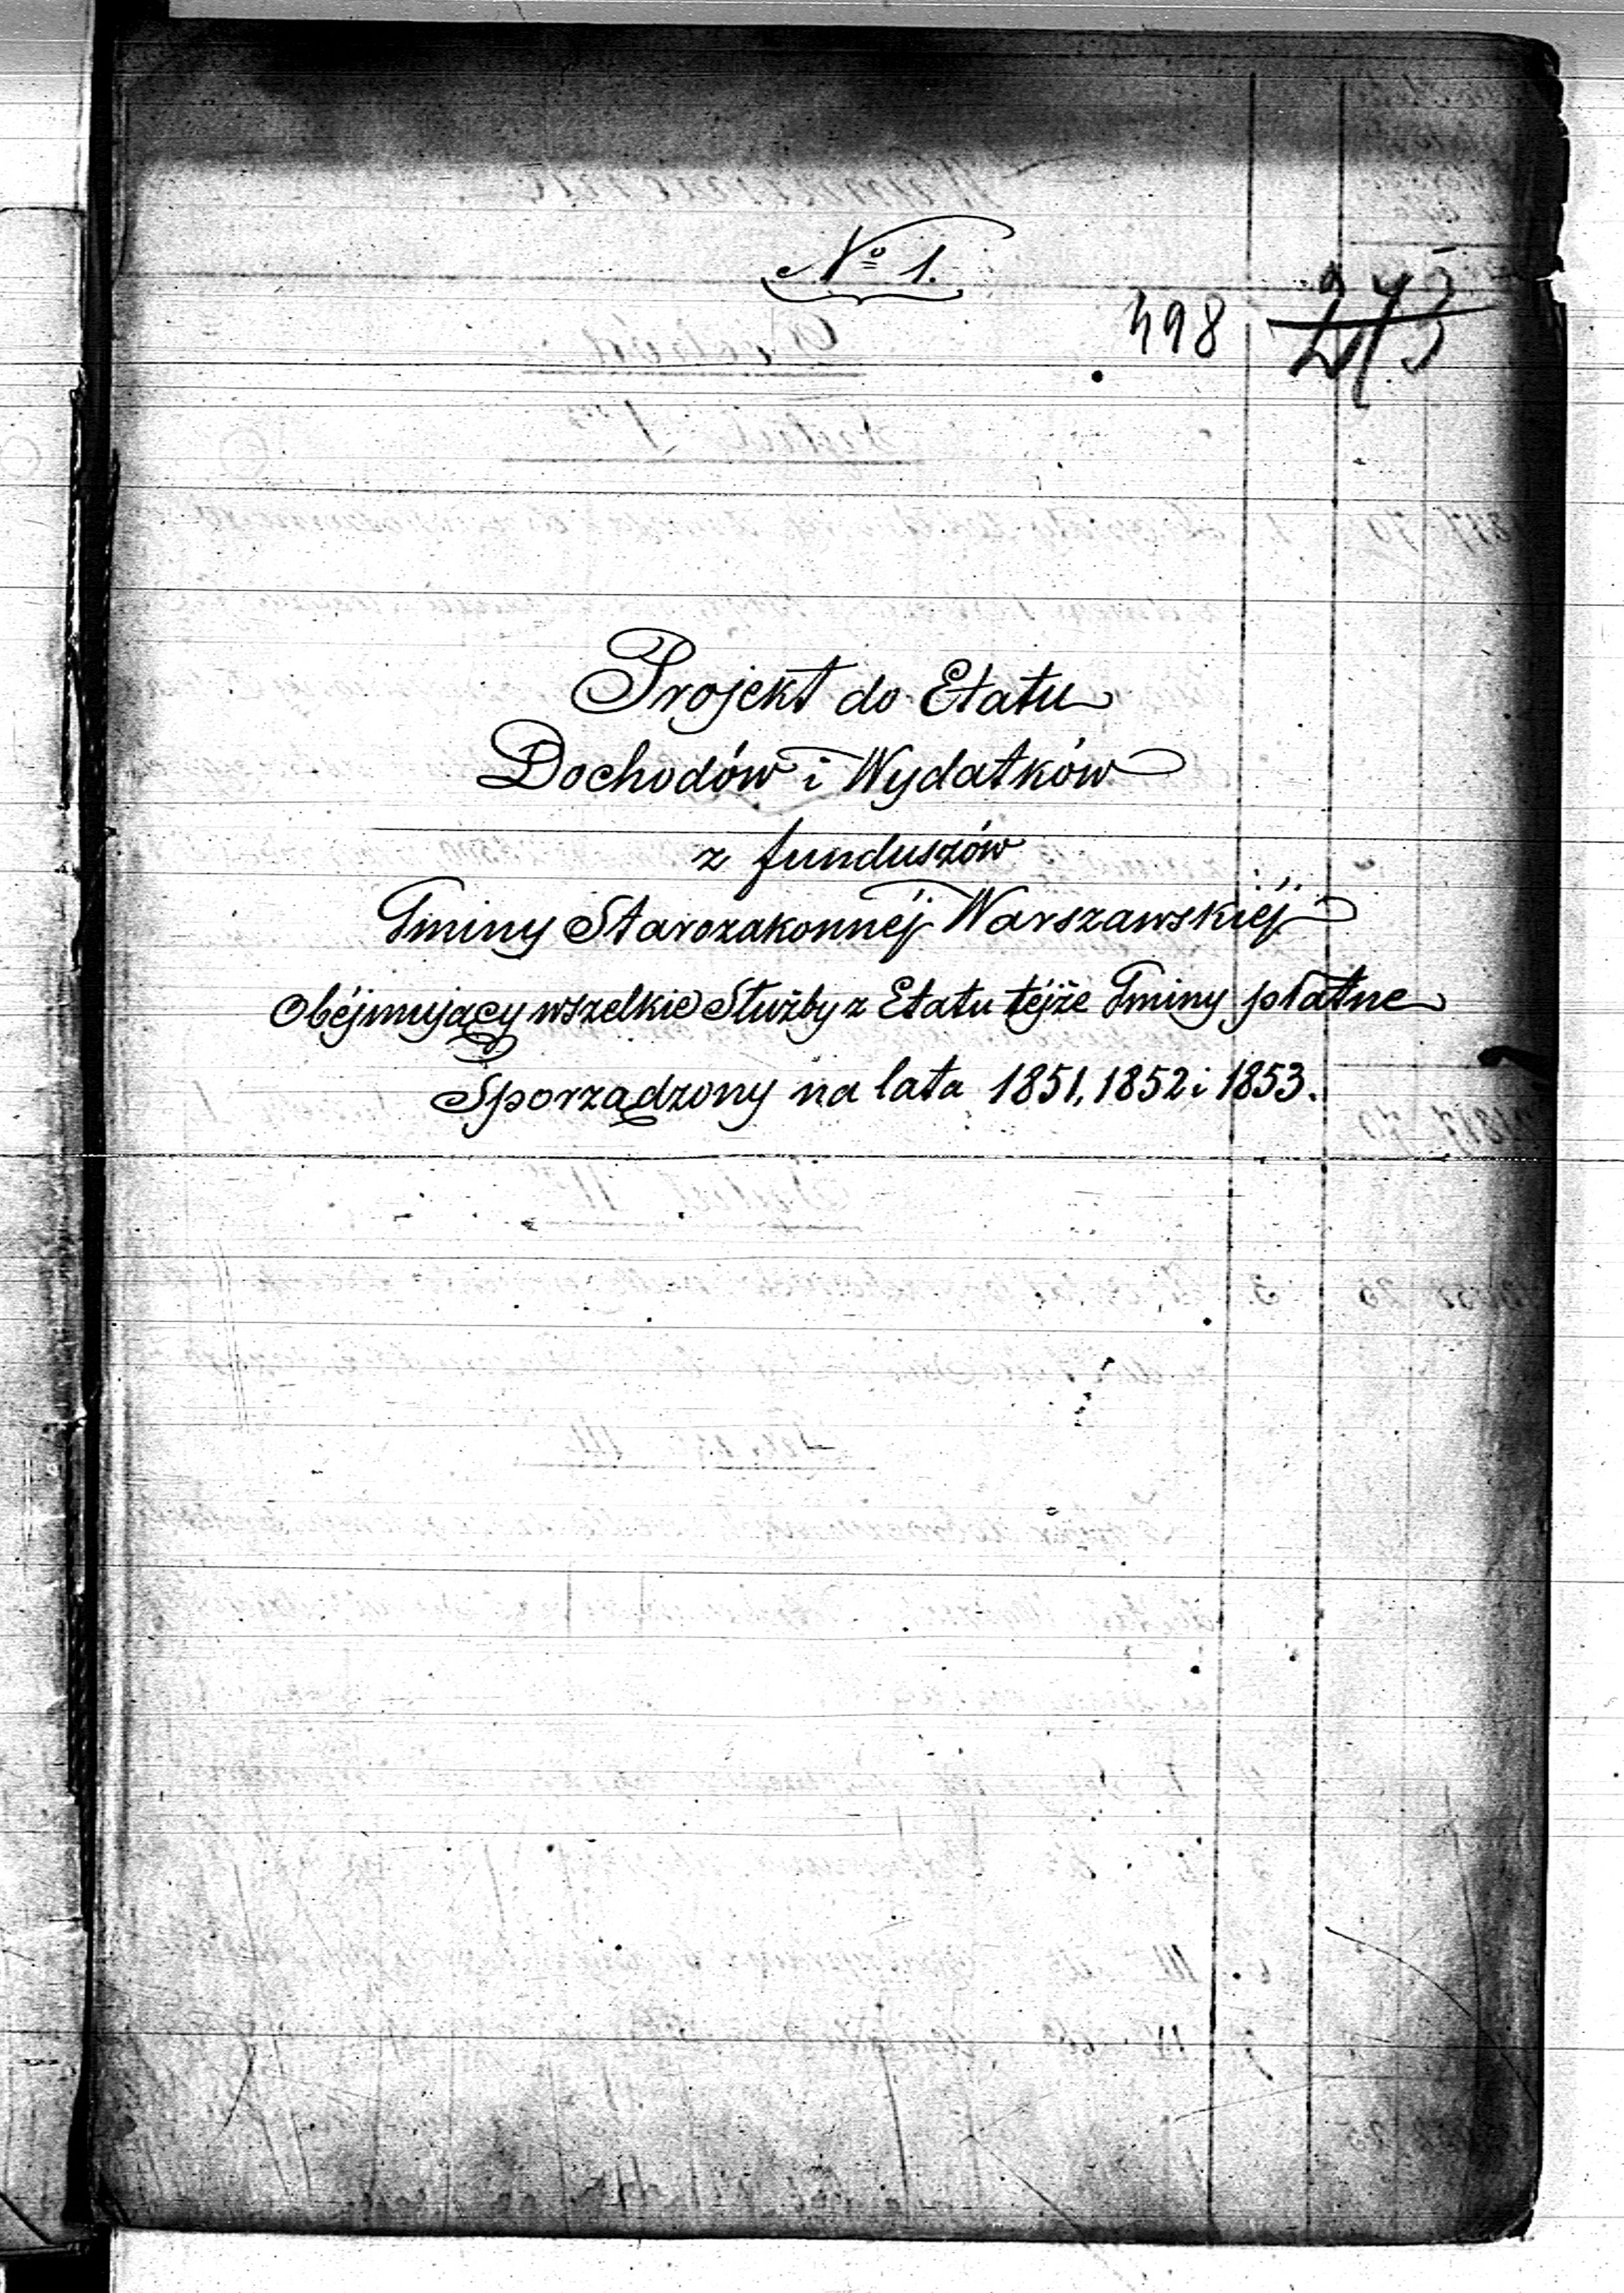 Nº 1.
498 273
Projekt do Etatu
Dochodów i Wydatków
z funduszów
Gminy Starozakonnéj Warszawskiéj
Obéjmujący wszelkie Służby z Etatu téjże Gminy płatne
Sporządzony na lata 1851, 1852 i 1853.